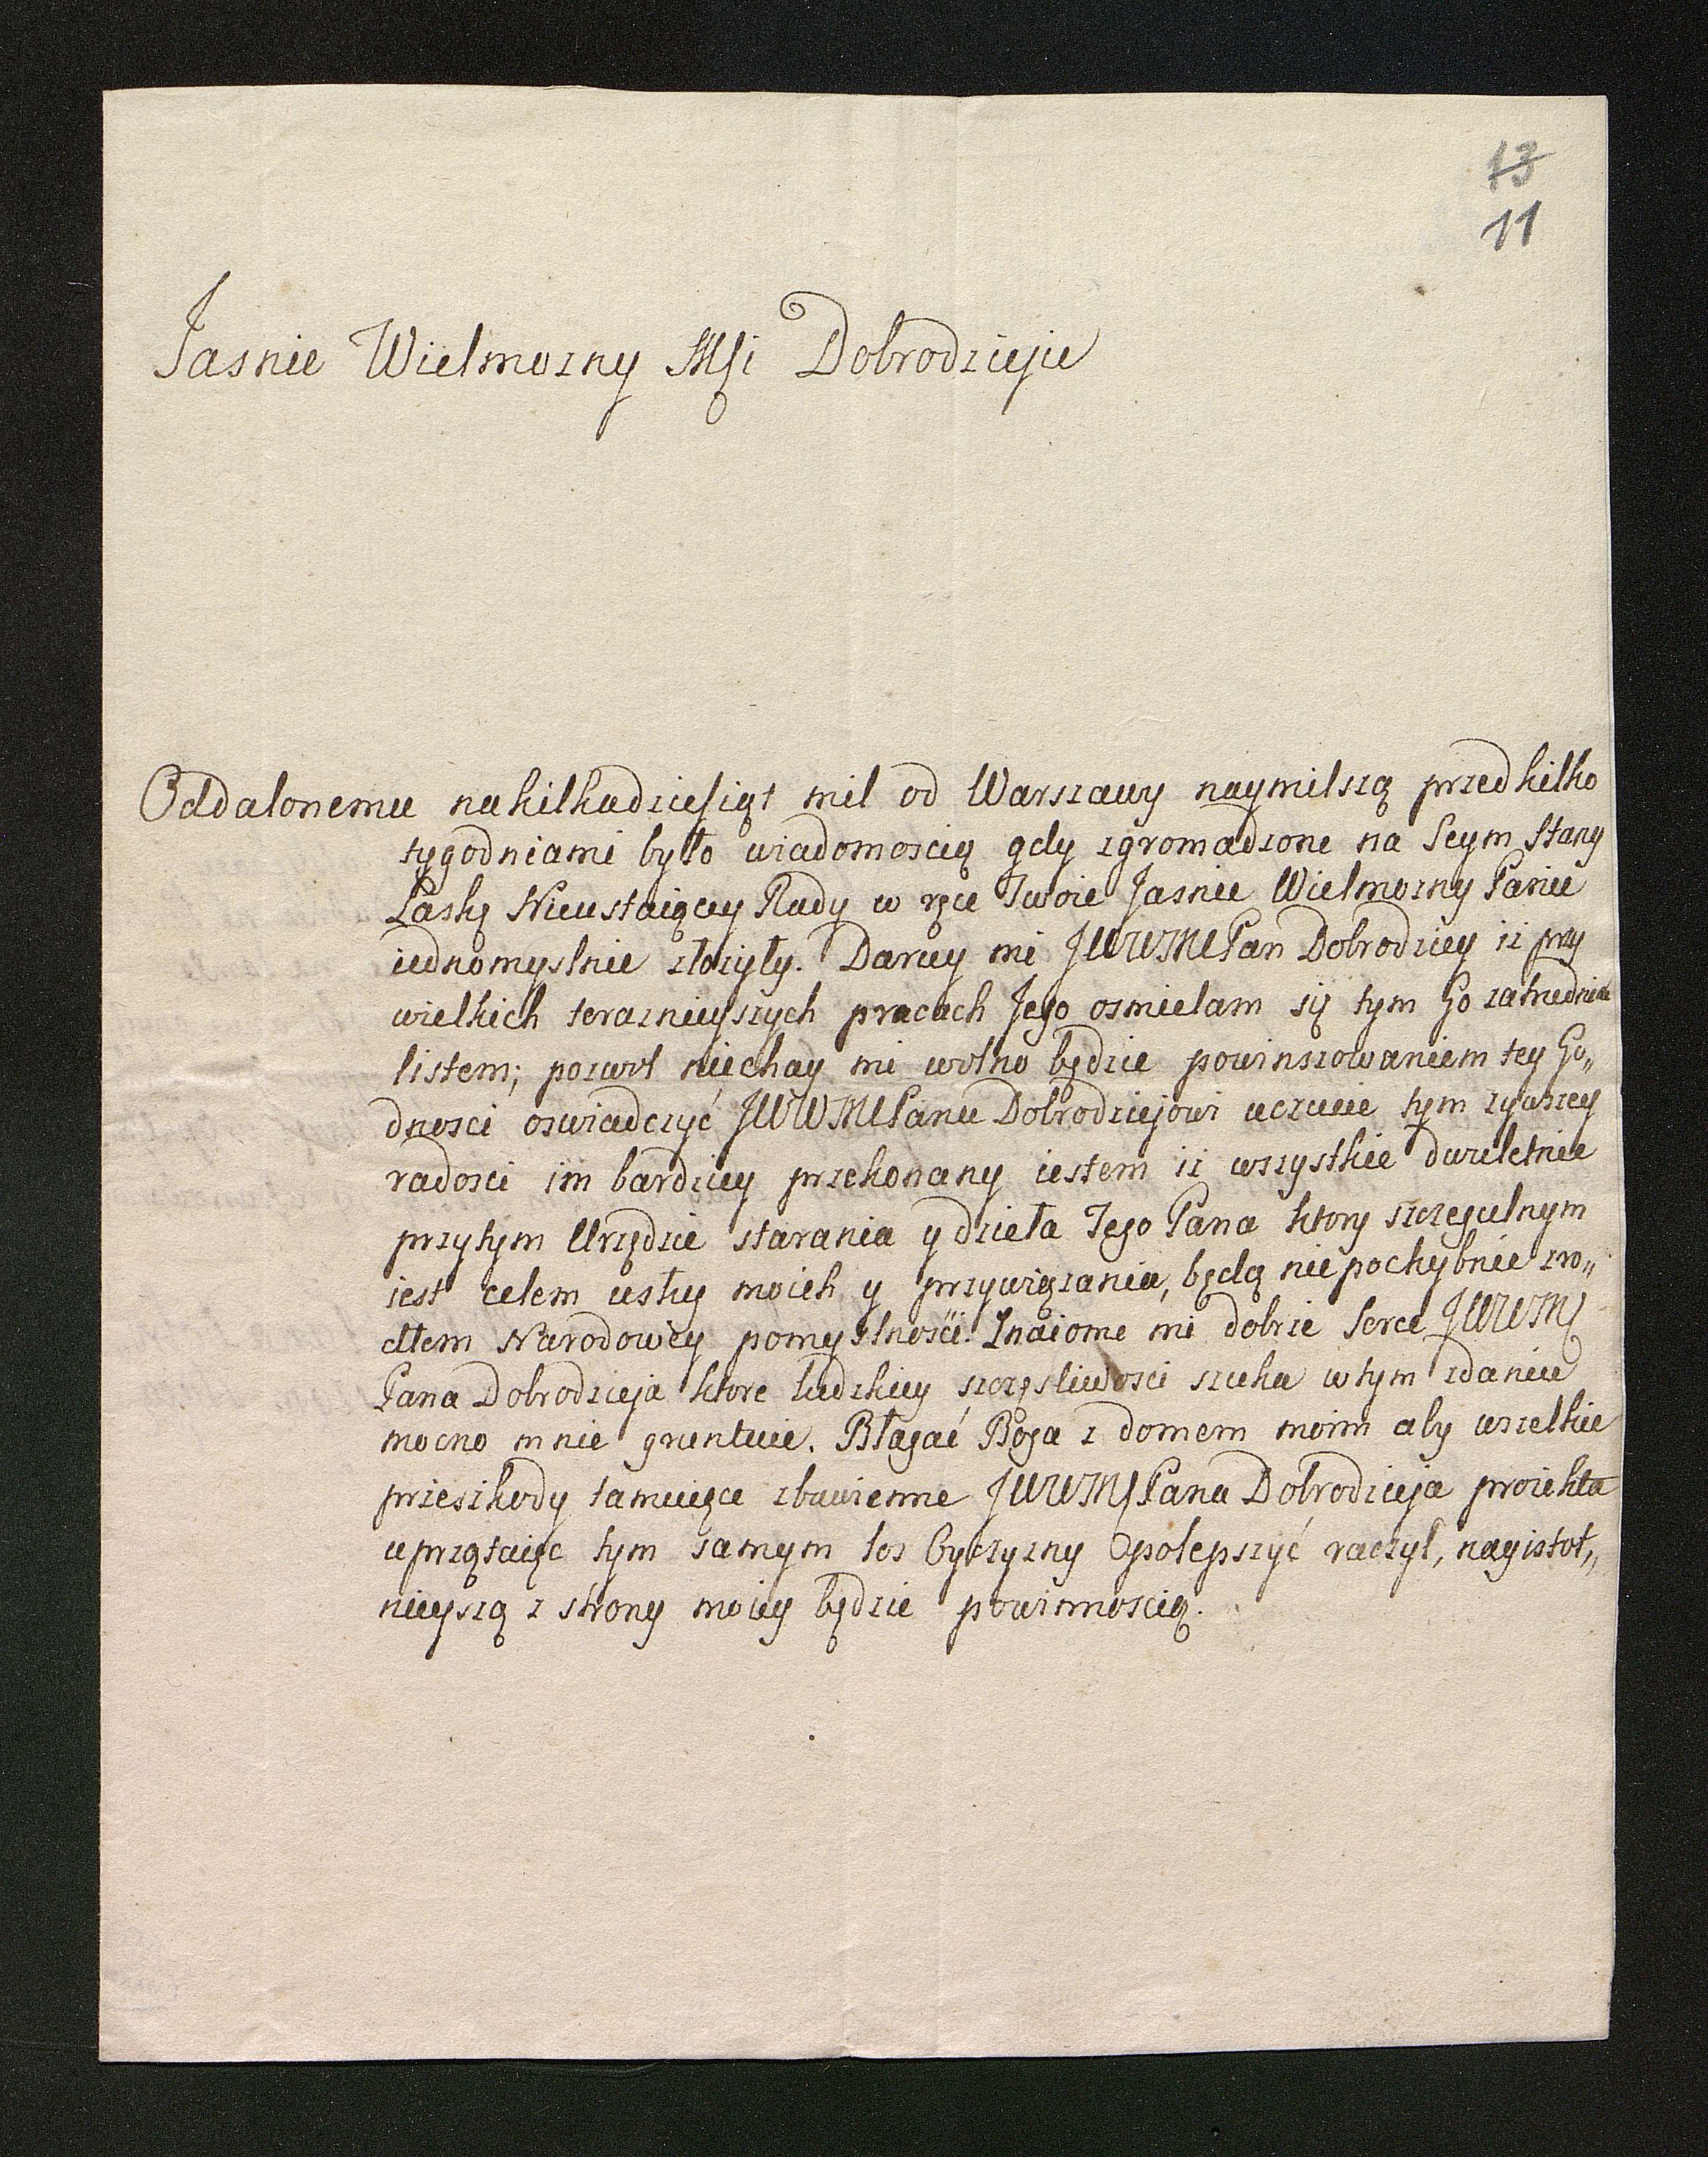 13
11
Jasnie Wielmozny Msi Dobrodzieju
Oddalonemu nakilkadziesiąt mil od Warszawy naymilszą przedkilko
tygodniami było wiadomoscią gdy zgromadzone na Seym Stany
Laskę Nieustaiącey Rady w ręce Twoie Jasnie Wielmozny Panie
iednomyslnie złozyły. Daruy mi JWWMPan Dobrodziey iz przy
wielkich teraznieyszych pracach Jego osmielam się tym Go zatrudniac
listem; pozwol niechay mi wolno będzie powinszowaniem tey Go„
dnosci oswiadczyć JWWMPanu Dobrodziejowi uczucie tym zywszey
radosci im bardziey przekonany iestem iz wszystkie dwuletnie
przytym Urzędzie starania y dzieła Tego Pana ktory szczegulnym
iest celem usług moich y przywiązania, będą niepochybnie zro„
dłem Narodowey pomyslnosci. Znaiome mi dobrze serce JWWM
Pana Dobrodzieja ktore ludzkiey szczęsliwosci szuka wtym zdaniu
mocno mnie gruntuie. Błagać Boga z domem moim aby wszelkie
przeszkody tamuiące zbawienne JWWMPana Dobrodzieja proiekta
uprzątaiąc tym samym los Oyczyzny polepszyć raczył, nayistot„
nieyszą z strony moiey będzie powinnoscią.